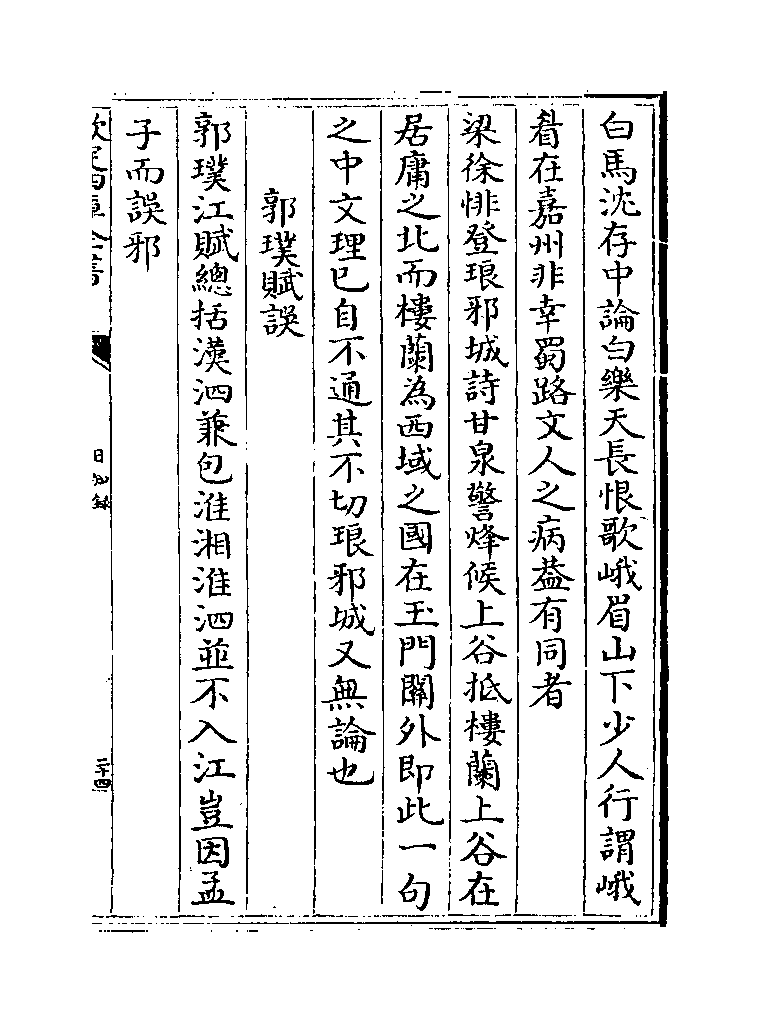 白馬沈存中論白樂天長恨歌峨眉山下少人行謂峨
眉在嘉州非幸蜀路文人之病葢有同者
梁徐悱登琅邪城詩甘泉警烽候上谷抵樓蘭上谷在
居庸之北而樓蘭為西域之國在玉門關外即此一句
之中文理已自不通其不切琅邪城又無論也
郭璞賦誤
郭璞江賦總括漢泗兼包淮湘淮泗並不入江豈因孟
子而誤邪
欽定四庫全書
日知錄
二十四